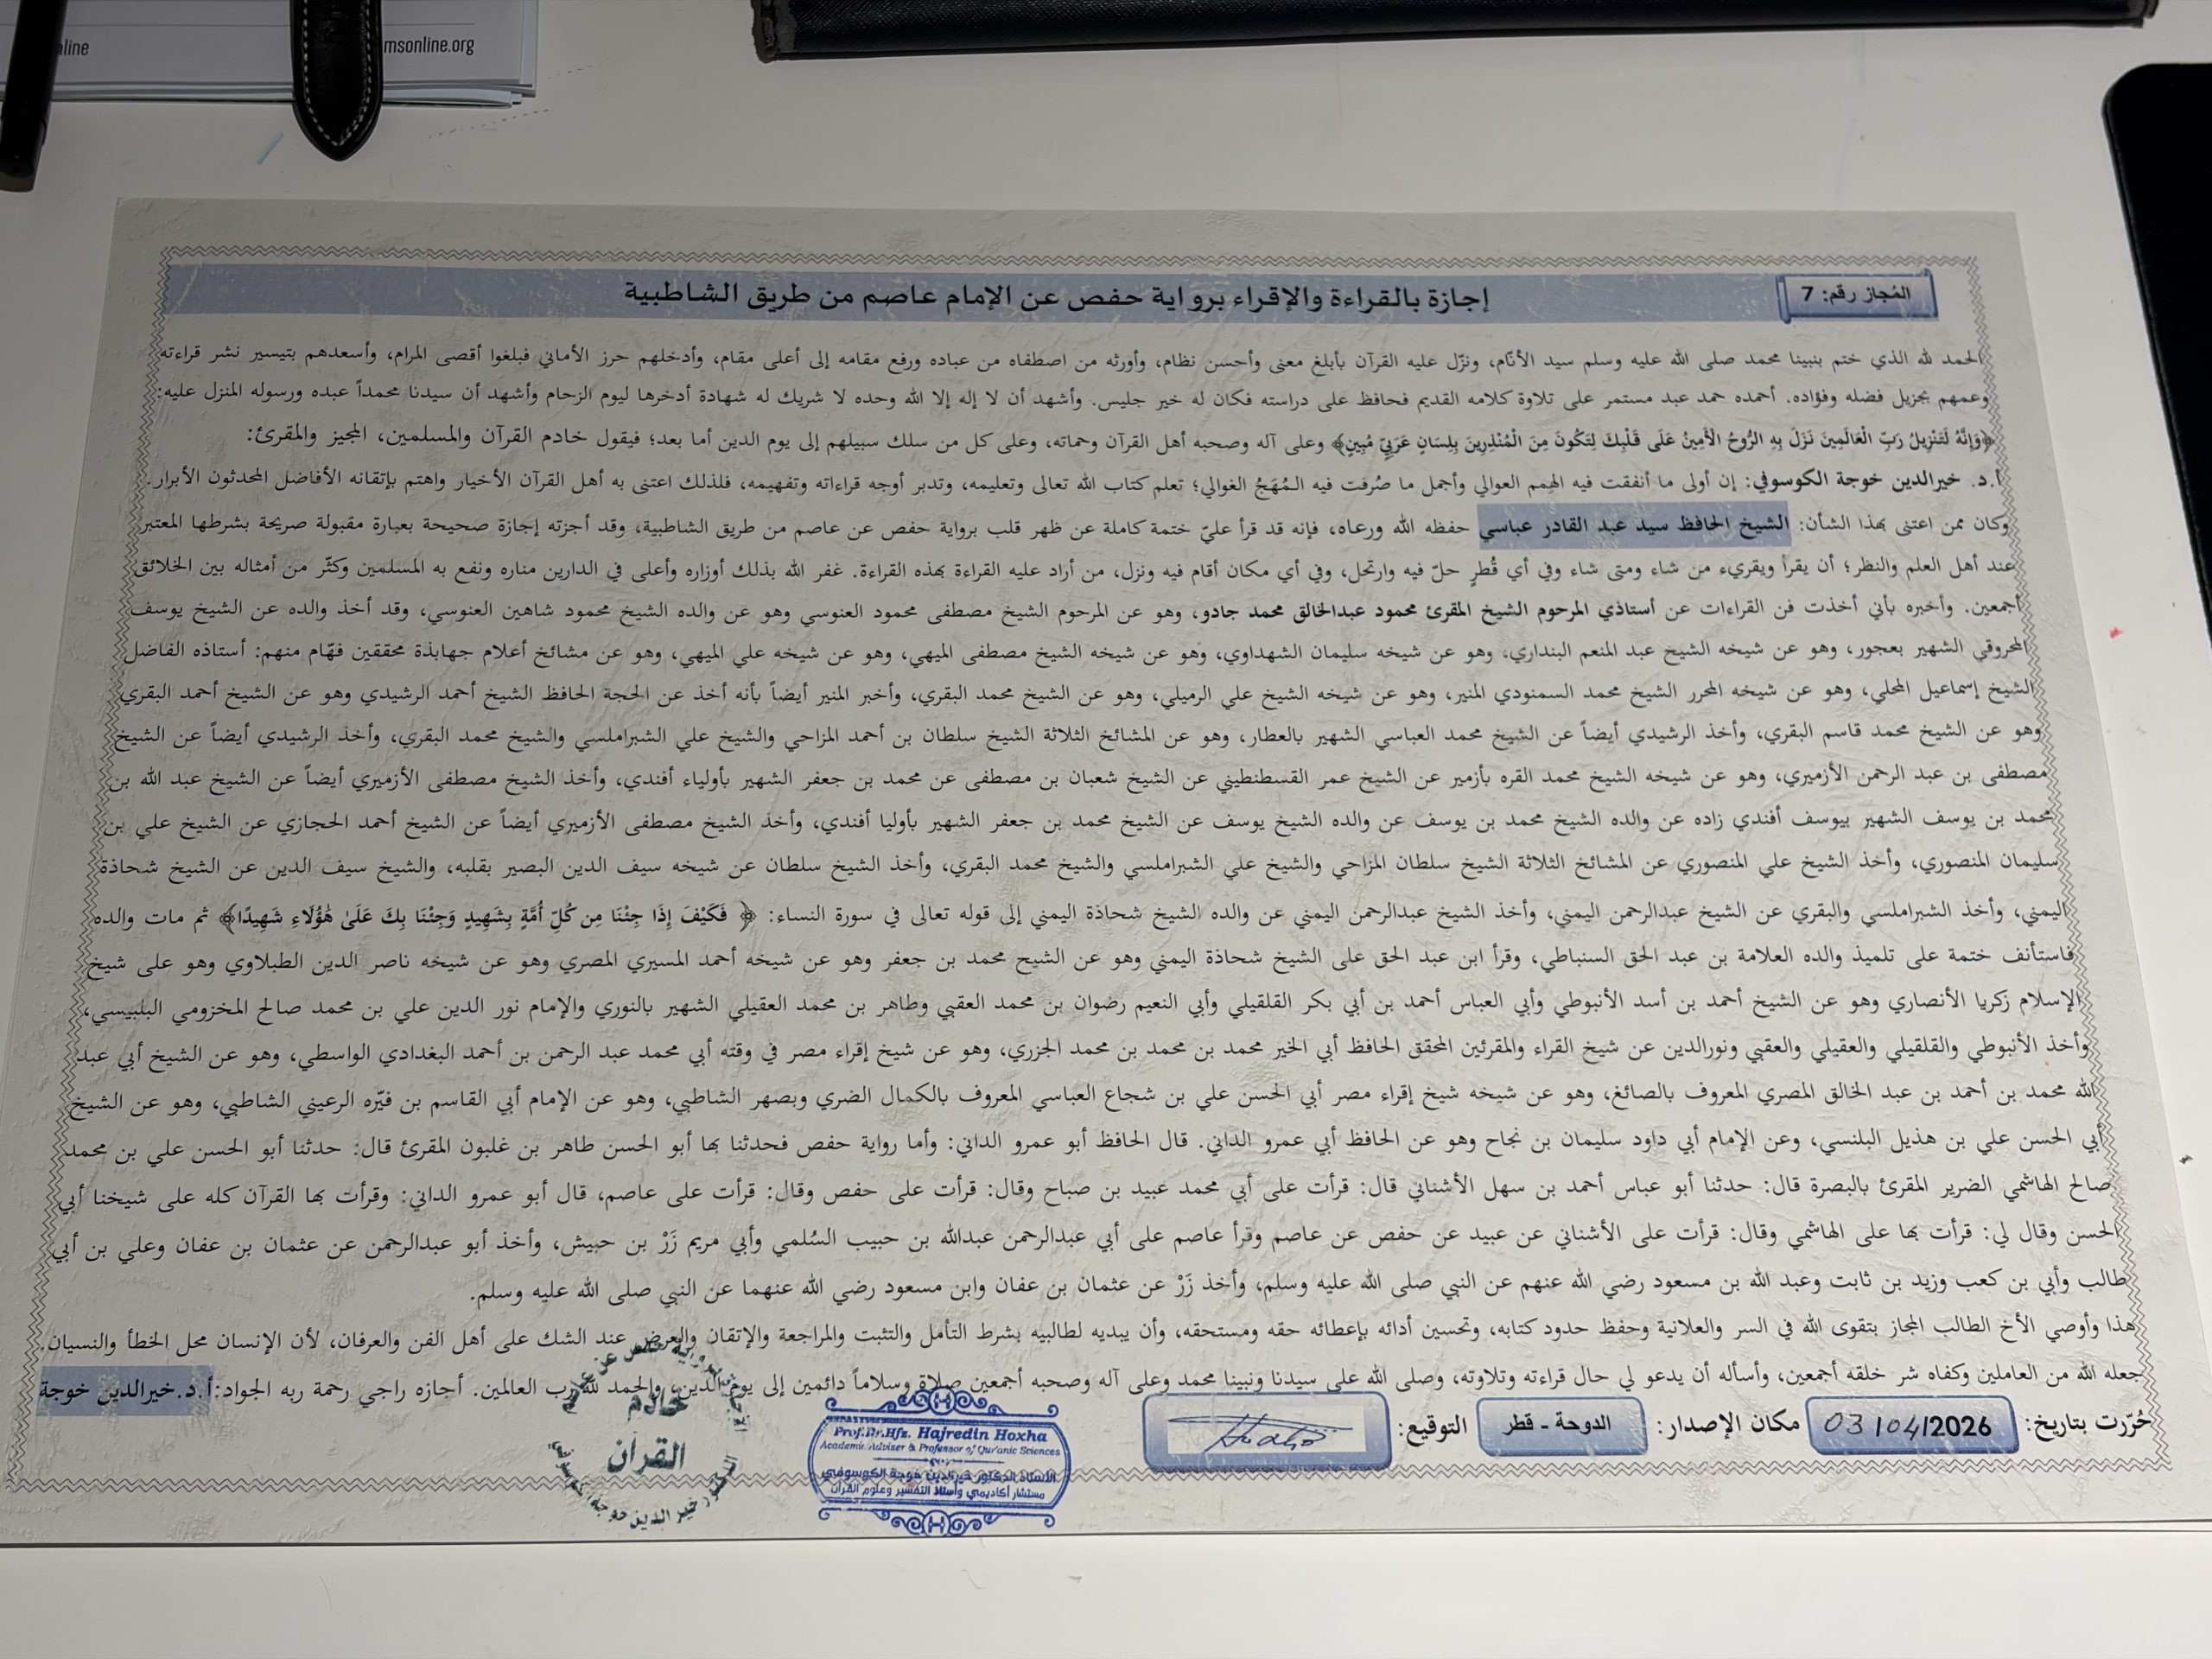 nline
msonline.org
المُجاز رقم: 7
إجازة بالقراءة والإقراء برواية حفص عن الإمام عاصم من طريق الشاطبية
الحمد لله الذي ختم بنبينا محمد صلى الله عليه وسلم سيد الأنّام، ونزّل عليه القرآن بأبلغ معنى وأحسن نظام، وأورثه من اصطفاه من عباده ورفع مقامه إلى أعلى مقام، وأدخلهم حرز الأماني فبلغوا أقصى المرام، وأسعدهم بتيسير نشر قراءته
وعمهم بجزيل فضله وفؤاده. أحمده حمد عبد مستمر على تلاوة كلامه القديم فحافظ على دراسته فكان له خير جليس. وأشهد أن لا إله إلا الله وحده لا شريك له شهادة أدخرها ليوم الزحام وأشهد أن سيدنا محمداً عبده ورسوله المنزل عليه:
﴿وَإِنَّهُ لَتَنْزِيلُ رَبِّ الْعَالَمِينَ نَزَلَ بِهِ الرُّوحُ الْأَمِينُ عَلَى قَلْبِكَ لِتَكُونَ مِنَ الْمُنْذِرِينَ بِلِسَانٍ عَرَبِيٍّ مُبِينٍ﴾ وعلى آله وصحبه أهل القرآن وحماته، وعلى كل من سلك سبيلهم إلى يوم الدين أما بعد؛ فيقول خادم القرآن والمسلمين، المجيز والمقرئ:
أ.د. خيرالدين خوجة الكوسوفي: إن أولى ما أنفقت فيه الهمم العوالي وأجمل ما صُرفت فيه الـمُهَجُ الغوالي؛ تعلم كتاب الله تعالى وتعليمه، وتدبر أوجه قراءاته وتفهيمه، فلذلك اعتنى به أهل القرآن الأخيار واهتم بإتقانه الأفاضل المحدثون الأبرار.
وكان ممن اعتنى بهذا الشأن: الشيخ الحافظ سيد عبد القادر عباسي حفظه الله ورعاه، فإنه قد قرأ عليّ ختمة كاملة عن ظهر قلب برواية حفص عن عاصم من طريق الشاطبية، وقد أجزته إجازة صحيحة بعبارة مقبولة صريحة بشرطها المعتبر
عند أهل العلم والنظر؛ أن يقرأ ويقريء من شاء ومتى شاء وفي أي قُطرٍ حلّ فيه وارتحل، وفي أي مكان أقام فيه ونزل، من أراد عليه القراءة بهذه القراءة. غفر الله بذلك أوزاره وأعلى في الدارين مناره ونفع به المسلمين وكثّر من أمثاله بين الخلائق
أجمعين. وأخبره بأني أخذت فن القراءات عن أستاذي المرحوم الشيخ المقرئ محمود عبدالخالق محمد جادو، وهو عن المرحوم الشيخ مصطفى محمود العنوسي وهو عن والده الشيخ محمود شاهين العنوسي، وقد أخذ والده عن الشيخ يوسف
المحروقي الشهير بعجور، وهو عن شيخه الشيخ عبد المنعم البنداري، وهو عن شيخه سليمان الشهداوي، وهو عن شيخه الشيخ مصطفى الميهي، وهو عن شيخه علي الميهي، وهو عن مشائخ أعلام جهابذة محققين فهّام منهم: أستاذه الفاضل
الشيخ إسماعيل المحلي، وهو عن شيخه المحرر الشيخ محمد السمنودي المنير، وهو عن شيخه الشيخ علي الرميلي، وهو عن الشيخ محمد البقري، وأخبر المنير أيضاً بأنه أخذ عن الحجة الحافظ الشيخ أحمد الرشيدي وهو عن الشيخ أحمد البقري
وهو عن الشيخ محمد قاسم البقري، وأخذ الرشيدي أيضاً عن الشيخ محمد العباسي الشهير بالعطار، وهو عن المشائخ الثلاثة الشيخ سلطان بن أحمد المزاحي والشيخ علي الشبراملسي والشيخ محمد البقري، وأخذ الرشيدي أيضاً عن الشيخ
مصطفى بن عبد الرحمن الأزميري، وهو عن شيخه الشيخ محمد القره بأزمير عن الشيخ عمر القسطنطيني عن الشيخ شعبان بن مصطفى عن محمد بن جعفر الشهير بأولياء أفندي، وأخذ الشيخ مصطفى الأزميري أيضاً عن الشيخ عبد الله بن
محمد بن يوسف الشهير بيوسف أفندي زاده عن والده الشيخ محمد بن يوسف عن والده الشيخ يوسف عن الشيخ محمد بن جعفر الشهير بأوليا أفندي، وأخذ الشيخ مصطفى الأزميري أيضاً عن الشيخ أحمد الحجازي عن الشيخ علي بن
سليمان المنصوري، وأخذ الشيخ علي المنصوري عن المشائخ الثلاثة الشيخ سلطان المزاحي والشيخ علي الشبراملسي والشيخ محمد البقري، وأخذ الشيخ سلطان عن شيخه سيف الدين البصير بقلبه، والشيخ سيف الدين عن الشيخ شحاذة
اليمني، وأخذ الشبراملسي والبقري عن الشيخ عبدالرحمن اليمني، وأخذ الشيخ عبدالرحمن اليمني عن والده الشيخ شحاذة اليمني إلى قوله تعالى في سورة النساء: ﴿ فَكَيْفَ إِذَا جِئْنَا مِن كُلِّ أُمَّةٍ بِشَهِيدٍ وَجِئْنَا بِكَ عَلَىٰ هَٰؤُلَاءِ شَهِيدًا﴾ ثم مات والده
فاستأنف ختمة على تلميذ والده العلامة بن عبد الحق السنباطي، وقرأ ابن عبد الحق على الشيخ شحاذة اليمني وهو عن الشيح محمد بن جعفر وهو عن شيخه أحمد المسيري المصري وهو عن شيخه ناصر الدين الطبلاوي وهو على شيخ
الإسلام زكريا الأنصاري وهو عن الشيخ أحمد بن أسد الأنبوطي وأبي العباس أحمد بن أبي بكر القلقيلي وأبي النعيم رضوان بن محمد العقبي وطاهر بن محمد العقيلي الشهير بالنوري والإمام نور الدين علي بن محمد صالح المخزومي البلبيسي،
وأخذ الأنبوطي والقلقيلي والعقيلي والعقبي ونورالدين عن شيخ القراء والمقرئين المحقق الحافظ أبي الخير محمد بن محمد بن محمد الجزري، وهو عن شيخ إقراء مصر في وقته أبي محمد عبد الرحمن بن أحمد البغدادي الواسطي، وهو عن الشيخ أبي عبد
الله محمد بن أحمد بن عبد الخالق المصري المعروف بالصائغ، وهو عن شيخه شيخ إقراء مصر أبي الحسن علي بن شجاع العباسي المعروف بالكمال الضري وبصهر الشاطبي، وهو عن الإمام أبي القاسم بن فيّره الرعيني الشاطبي، وهو عن الشيخ
أبي الحسن علي بن هذيل البلنسي، وعن الإمام أبي داود سليمان بن نجاح وهو عن الحافظ أبي عمرو الداني. قال الحافظ أبو عمرو الداني: وأما رواية حفص فحدثنا بها أبو الحسن طاهر بن غلبون المقرئ قال: حدثنا أبو الحسن علي بن محمد
صالح الهاشمي الضرير المقرئ بالبصرة قال: حدثنا أبو عباس أحمد بن سهل الأشناني قال: قرأت على أبي محمد عبيد بن صباح وقال: قرأت على حفص وقال: قرأت على عاصم، قال أبو عمرو الداني: وقرأت بها القرآن كله على شيخنا أبي
الحسن وقال لي: قرأت بها على الهاشمي وقال: قرأت على الأشناني عن عبيد عن حفص عن عاصم وقرأ عاصم على أبي عبدالرحمن عبدالله بن حبيب السُلمي وأبي مريم زَرْ بن حبيش، وأخذ أبو عبدالرحمن عن عثمان بن عفان وعلي بن أبي
طالب وأبي بن كعب وزيد بن ثابت وعبد الله بن مسعود رضي الله عنهم عن النبي صلى الله عليه وسلم، وأخذ زَرْ عن عثمان بن عفان وابن مسعود رضي الله عنهما عن النبي صلى الله عليه وسلم.
هذا وأوصي الأخ الطالب المجاز بتقوى الله في السر والعلانية وحفظ حدود كتابه، وتحسين أدائه بإعطائه حقه ومستحقه، وأن يبديه لطالبيه بشرط التأمل والتثبت والمراجعة والإتقان والعرض عند الشك على أهل الفن والعرفان، لأن الإنسان محل الخطأ والنسيان.
جعله الله من العاملين وكفاه شر خلقه أجمعين، وأسأله أن يدعو لي حال قراءته وتلاوته، وصلى الله على سيدنا ونبينا محمد وعلى آله وصحبه أجمعين صلاة وسلاماً دائمين إلى يوم الدين، والحمد لله رب العالمين. أجازه راجي رحمة ربه الجواد: أ.د.خيرالدين خوجة
حُرّرت بتاريخ: 03/04/2026 مكان الإصدار: الدوحة - قطر التوقيع:
Prof.Dr.Hfs. Hajredin Hoxha
Academic Adviser & Professor of Qur'anic Sciences
الأستاذ الدكتور خيرالدين خوجة الكوسوفي
مستشار أكاديمي وأستاذ التفسير وعلوم القرآن
خادم
القرآن
خير الدين خوجة